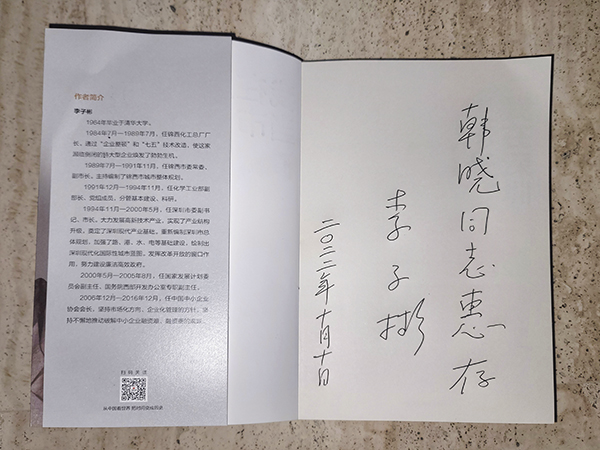 作者简介
李子彬
1964年毕业于清华大学。
1984年7月—1989年7月，任锦西化工总厂厂
长。通过“企业整顿”和“七五”技术改造，使这家
濒临倒闭的特大型企业焕发了勃勃生机。
1989年7月—1991年11月，任锦西市委常委、
副市长。主持编制了锦西市城市整体规划。
1991年12月—1994年11月，任化学工业部副
部长、党组成员，分管基本建设、科研。
1994年11月—2000年5月，任深圳市委副书
记、市长。大力发展高新技术产业，实现了产业结构
升级，奠定了深圳现代产业基础。重新编制深圳市总
体规划，加强了路、港、水、电等基础建设，绘制出
深圳现代化国际性城市蓝图。发挥改革开放的窗口作
用，努力建设廉洁高效政府。
2000年5月—2005年8月，任国家发展计划委
员会副主任、国务院西部开发办公室专职副主任。
2006年12月—2016年12月，任中国中小企业
协会会长。坚持市场化方向、企业化管理的方针，坚
持不懈地推动破解中小企业融资难、融资贵的
扫码关注
从中国看世界 把时间变成历史
韩晓同志惠存
李子彬
二〇二二年十月十日